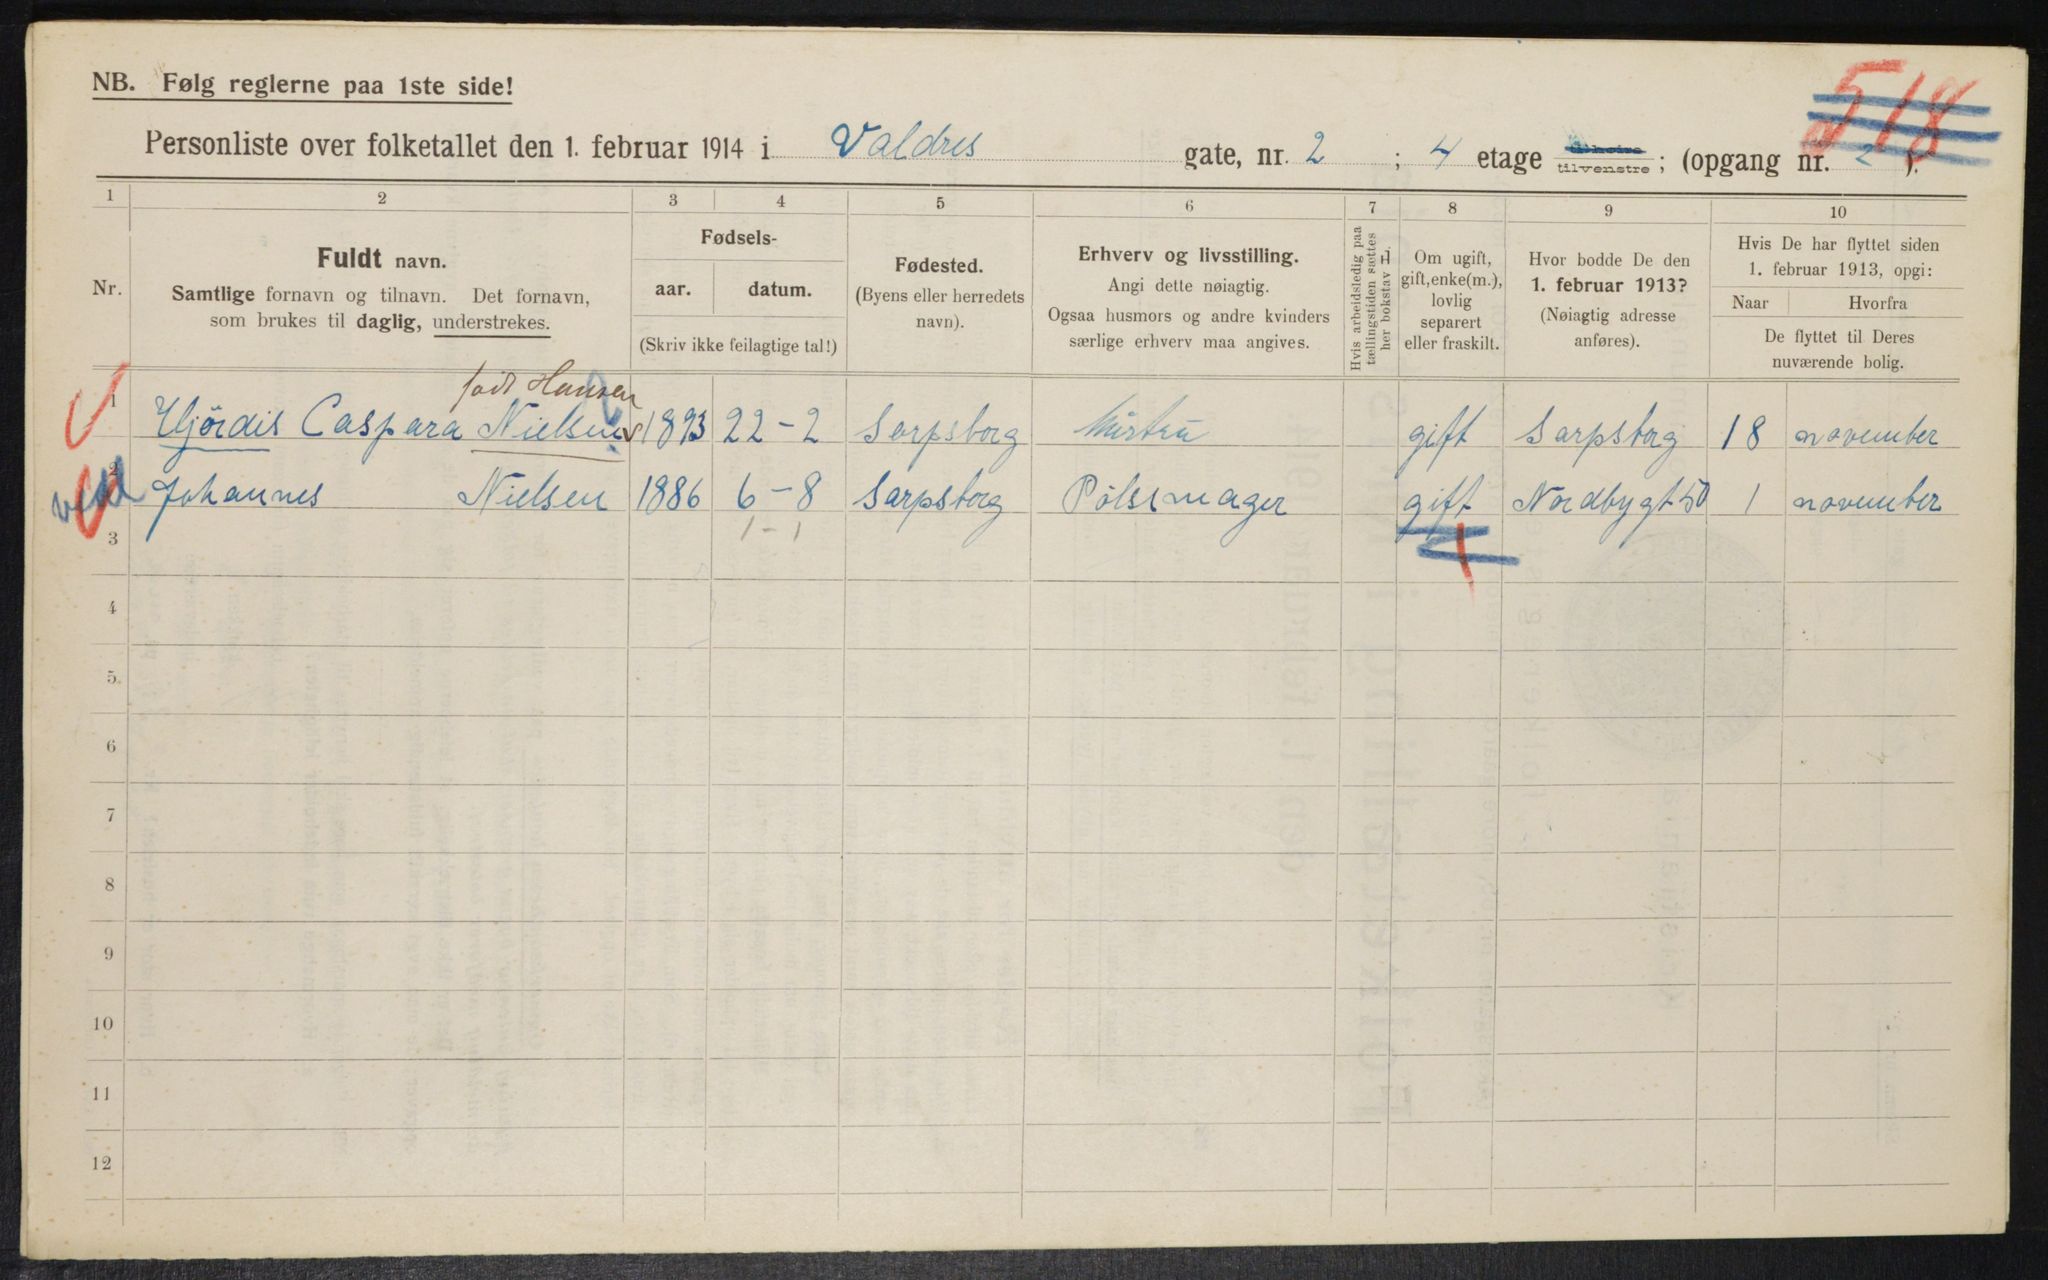 NB. Følg reglerne paa 1ste side!
518
Personliste over folketallet den 1. februar 1914 i Valdres gate, nr. 2 ; 4 etage tilhøire tilvenstre ; (opgang nr. 2 ).
1 2 3 4 5 6 7 8 9 10
Nr.
Fuldt navn.
Samtlige fornavn og tilnavn. Det fornavn,
som brukes til daglig, understrekes.
Fødsels-
aar. datum.
(Skriv ikke feilagtige tal!)
Fødested.
(Byens eller herredets
navn).
Erhverv og livsstilling.
Angi dette nøiagtig.
Ogsaa husmors og andre kvinders
særlige erhverv maa angives.
Hvis arbeidsledig paa
tællingstiden sættes
her bokstav L.
Om ugift,
gift, enke(m.),
lovlig
separert
eller fraskilt.
Hvor bodde De den
1. februar 1913?
(Nøiagtig adresse
anføres).
Hvis De har flyttet siden
1. februar 1913, opgi:
Naar Hvorfra
De flyttet til Deres
nuværende bolig.
født Hansen
1 Hjørdis Caspara Nielsen 1893 22-2 Sarpsborg Hustru gift Sarpsborg 18 november
2 Johannes Nielsen 1886 6-8 Sarpsborg Pølsemager gift Nordbygt 50 1 november
1-1
3
4
5
6
7
8
9
10
11
12